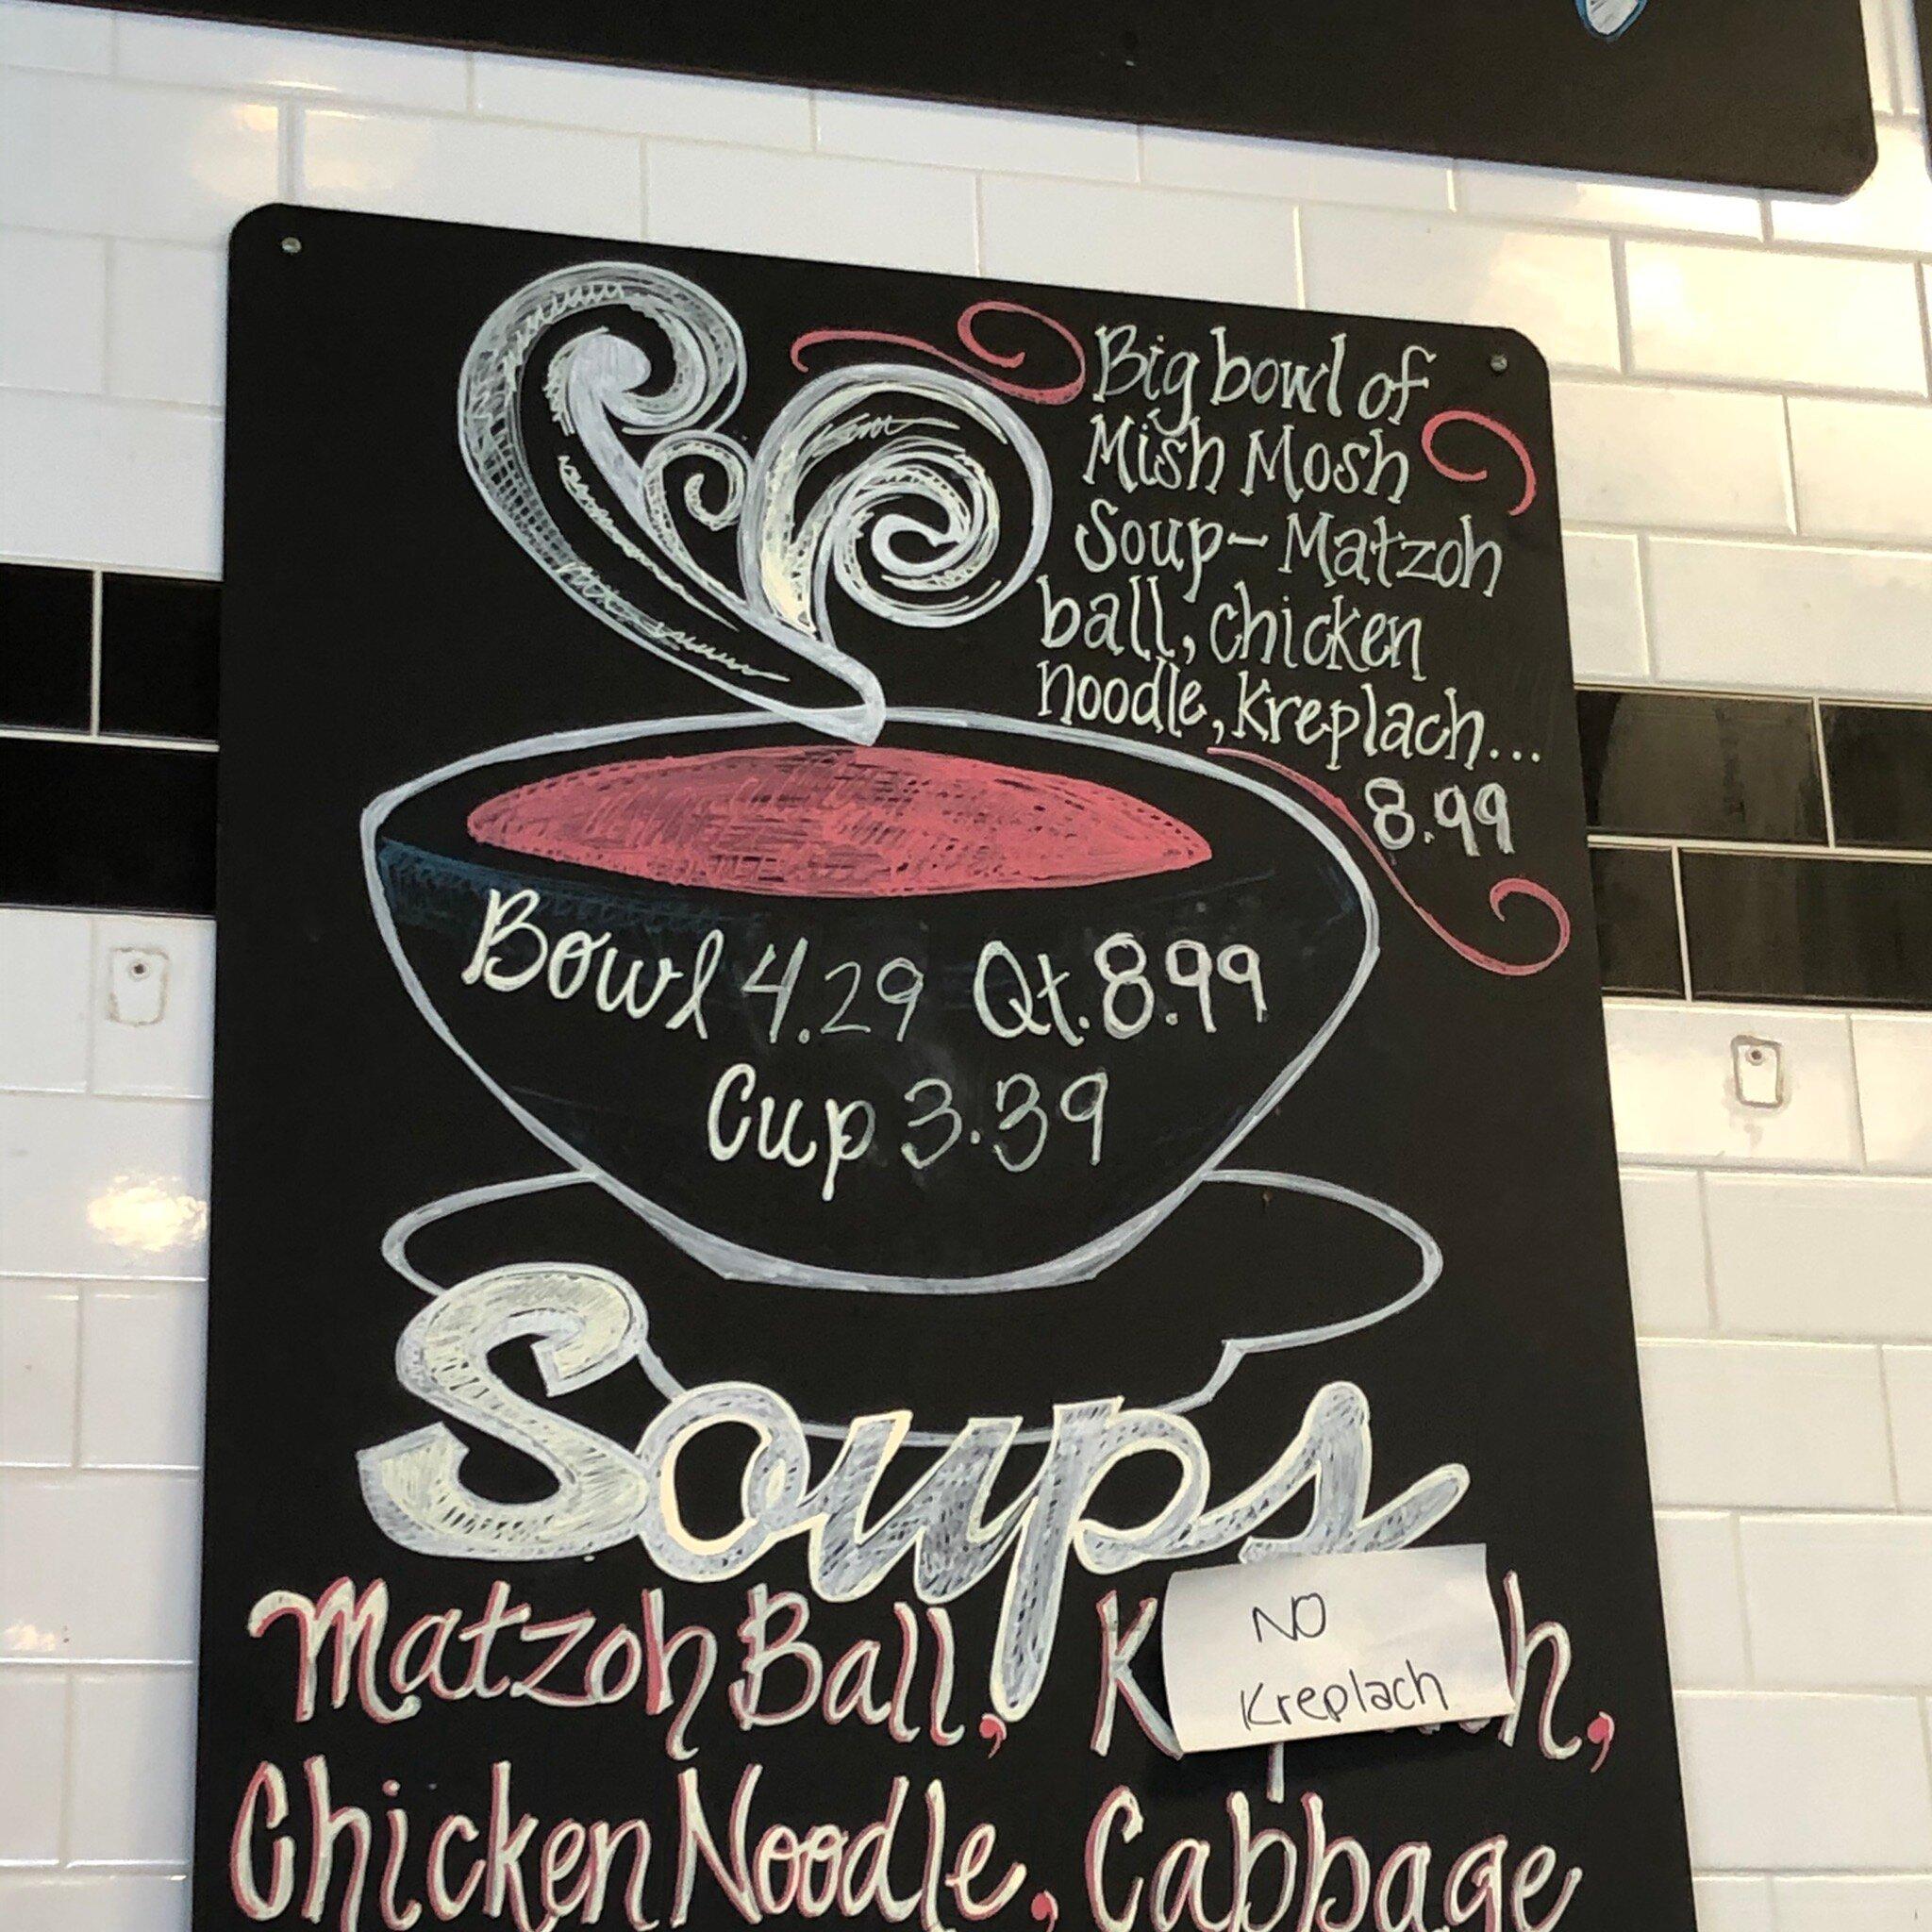 Big bowl of
Mish Mosh
Soup- Matzoh
ball, chicken
noodle, kreplach...
8.99
Bowl 4.29 Qt. 8.99
Cup 3.39
Soups
Matzoh Ball,
NO
Kreplach
Chicken Noodle, Cabbage